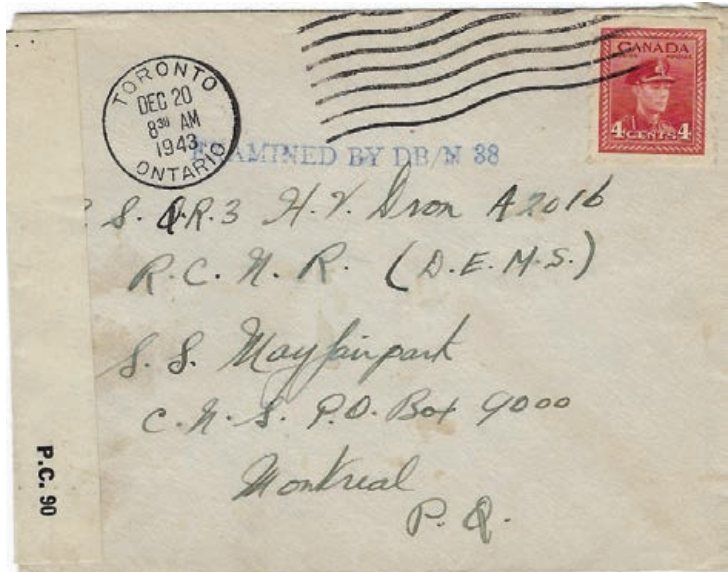 TORONTO
DEC 20
8 30 AM
1943
ONTARIO
CANADA
4 CENTS 4
EXAMINED BY DB/N 38
S. Q.R.3 H.V. Dron A2016
R.C.N.R. (D.E.M.S.)
S.S. Mayfairpark
C.N.S. P.O. Box 9000
Montreal
P.Q.
P.C. 90